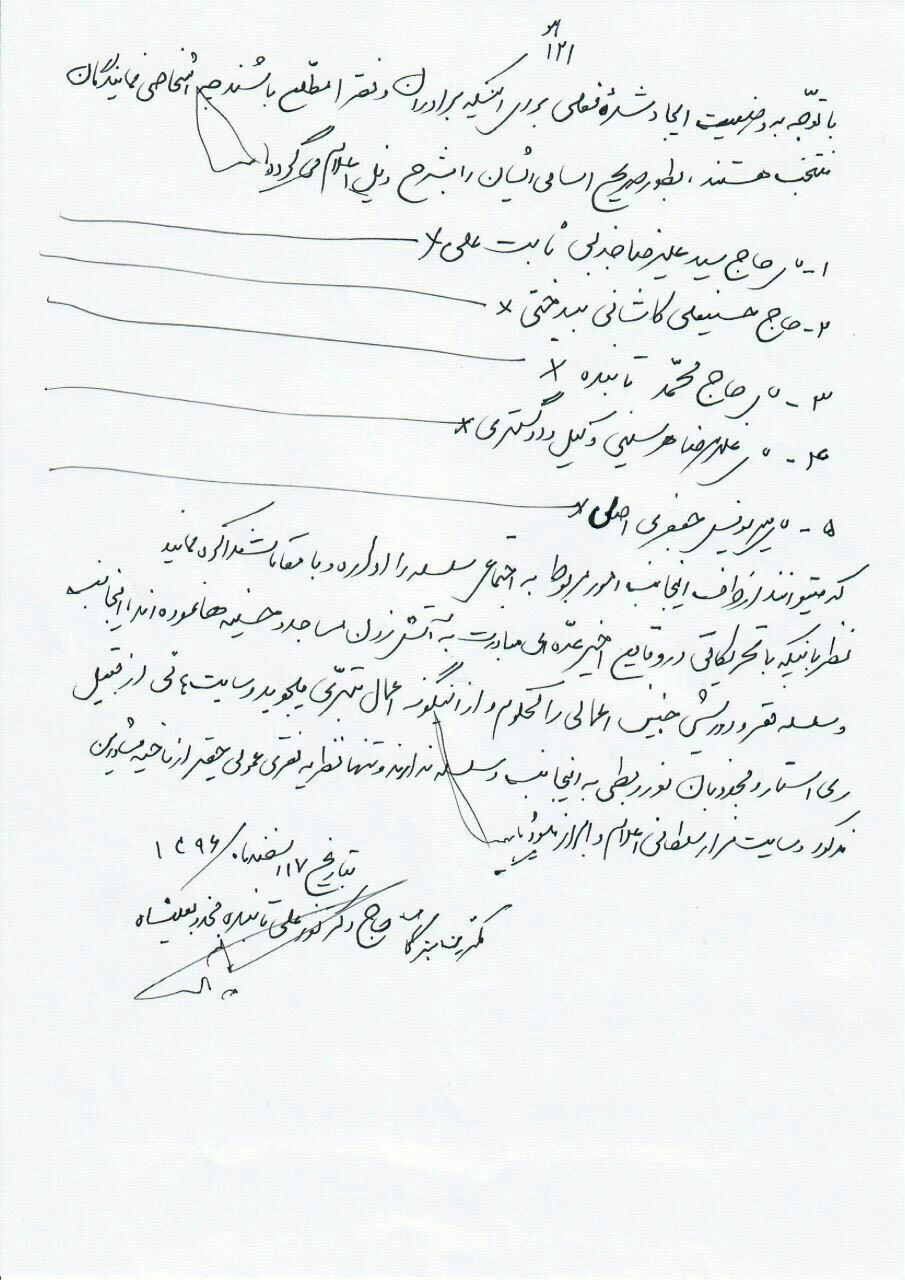 هو
۱۲۱
با توجّه به وضعیت ایجاد شدهٔ فعلی برای اینکه برادران و فقرا مطلع باشند چه اشخاصی نمایندگان
منتخب هستند، بطور صریح اسامی ایشان را بشرح ذیل اعلام می گردد:
۱- حاج سید علیرضا جذبی ثابت علی ×
۲- حاج حسینعلی کاشانی بیدختی ×
۳- حاج محمّد تابنده ×
۴- علیرضا هرسینی وکیل دادگستری ×
۵- جعفری اصل ×
که میتوانند از طرف اینجانب امور مربوط به اجتماعی سلسله را اداره و با مقامات مذاکره نمایند
نظر باینکه با تحریکاتی در وقایع اخیر عدّه ای مبادرت به آتش زدن مساجد و حسینیه ها نموده اند، اینجانب
و سلسله فقر و درویشی چنین اعمالی را محکوم و از اینگونه اعمال تبرّی میجوید و سایت هائی از قبیل
ری استارت و مجذوبان نور ربطی به اینجانب و سلسله ندارند و تنها نظریه فقری عمومی حقیر از ناحیه مشاورین
مذکور و سایت مزار سلطانی اعلام و ابراز
بتاریخ ۱۷ اسفندماه ۱۳۹۶
حاج دکتر نورعلی تابنده مجذوبعلیشاه